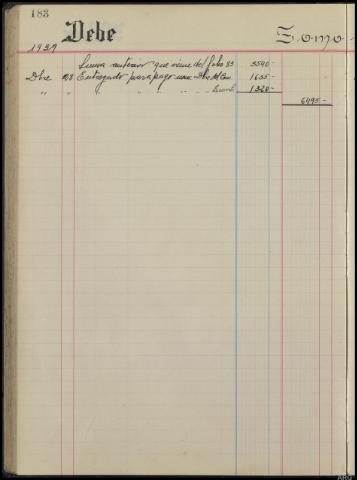 183
Debe
1939
Suma anterior que viene del folio 83 3540-
Dbre 28 Entregado para pago 1635-
" " " " " " " 1320-
6495-